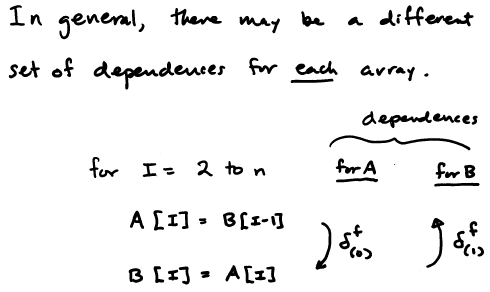 In general, there may be a different
set of dependences for each array.
dependences
for I = 2 to n for A for B
A [I] = B[I-1]
δᶠ₍₀₎ δᶠ₍₁₎
B [I] = A[I]